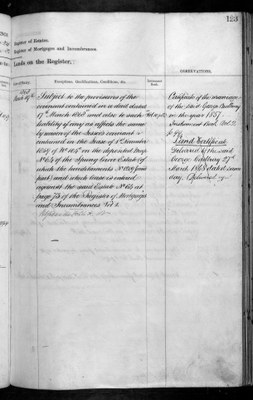 123
Register of Estates.
Register of Mortgages and Incumbrances.
Lands on the Register,
OBSERVATIONS.
Exceptions, Qualifications, Conditions, &c.
March 27th
Subject to the provisions of the
covenant contained in a deed dated
17th March 1868 and also to such
liability if any as affects the same
by reason of the Lessee's covenant
contained in the Lease of 1st December
1859 of No 104 on the deposited Map
No 64 of the Spring Grove Estate of
which the hereditaments No 179 form
part and which lease is entered
against the said Estate No 65 at
page 73 of the Register of Mortgages
and Incumbrances Vol 2.
Certificate of the marriage
of the said George
in the year 1857.
Land Certificate
Delivered to the said
George 27th
March 1868 dated same
day.